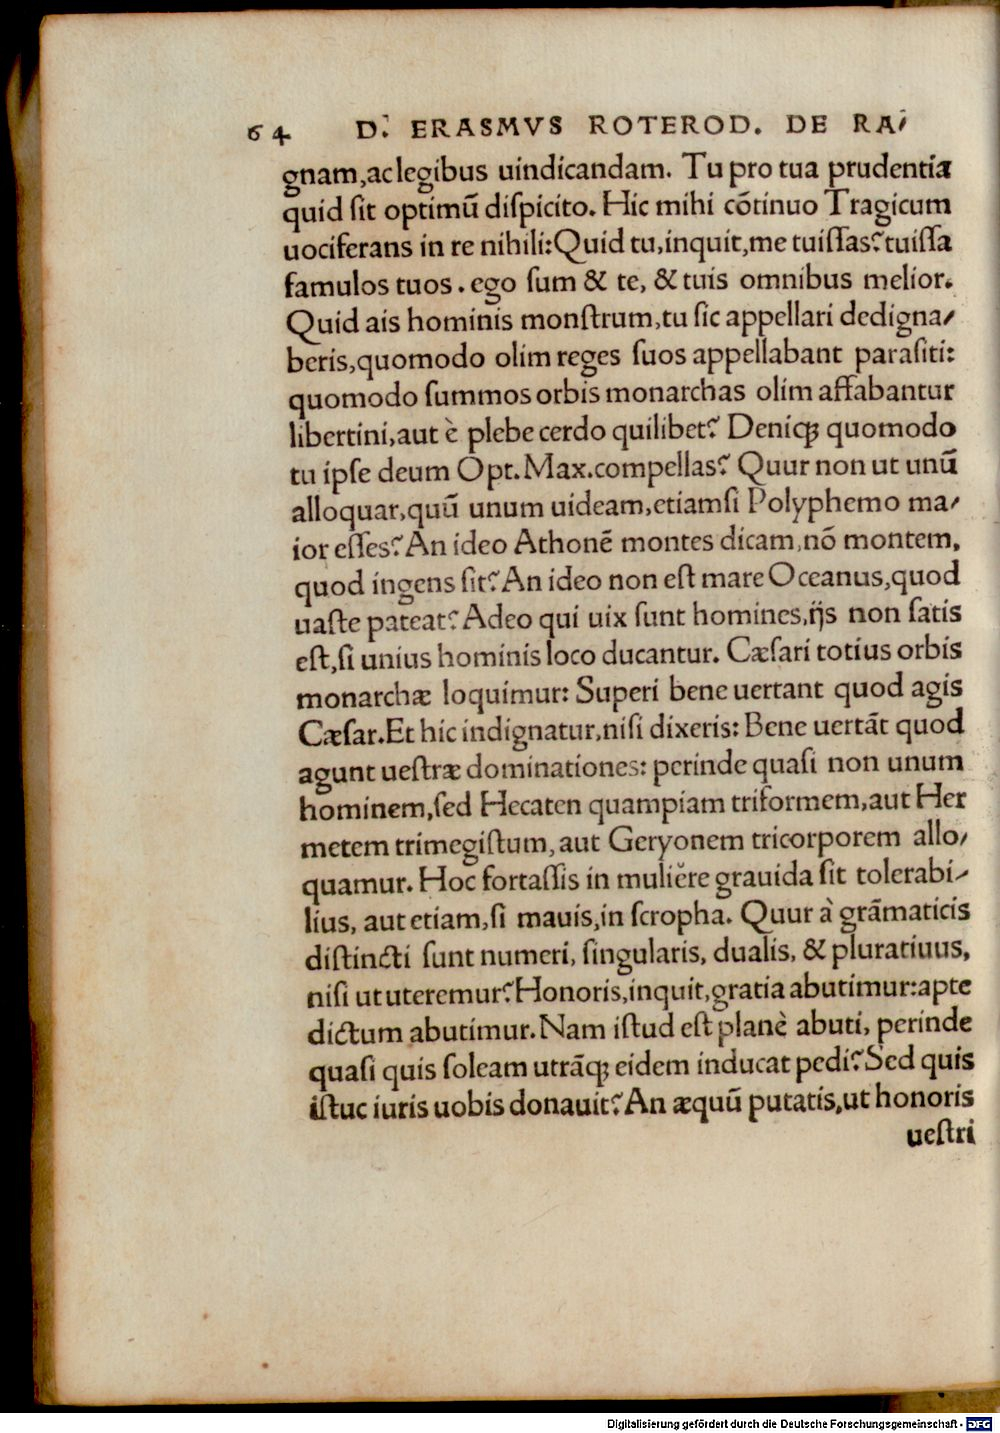 64 D. ERASMVS ROTEROD. DE RA/
gnam,ac legibus uindicandam. Tu pro tua prudentia
quid ſit optimū diſpicito. Hic mihi cōtinuo Tragicum
uociferans in re nihili: Quid tu,inquit,me tuiſſas? tuiſſa
famulos tuos. ego ſum & te, & tuis omnibus melior.
Quid ais hominis monſtrum,tu ſic appellari dedigna/
beris,quomodo olim reges ſuos appellabant paraſiti:
quomodo ſummos orbis monarchas olim affabantur
libertini,aut è plebe cerdo quilibet? Deniqꝫ quomodo
tu ipſe deum Opt. Max. compellas? Quur non ut unū
alloquar,quū unum uideam,etiamſi Polyphemo ma/
ior eſſes? An ideo Athonē montes dicam,nō montem,
quod ingens ſit? An ideo non eſt mare Oceanus,quod
uaſte pateat? Adeo qui uix ſunt homines,ijs non ſatis
eſt,ſi unius hominis loco ducantur. Cæſari totius orbis
monarchæ loquimur: Superi bene uertant quod agis
Cæſar. Et hic indignatur,niſi dixeris: Bene uertāt quod
agunt ueſtræ dominationes: perinde quaſi non unum
hominem,ſed Hecaten quampiam triformem,aut Her
metem trimegiſtum, aut Geryonem tricorporem allo/
quamur. Hoc fortaſſis in muliere grauida ſit tolerabi/
lius, aut etiam,ſi mauis,in ſcropha. Quur à grāmaticis
diſtincti ſunt numeri, ſingularis, dualis, & pluratiuus,
niſi ut uteremur? Honoris,inquit,gratia abutimur: apte
dictum abutimur. Nam iſtud eſt planè abuti, perinde
quaſi quis ſoleam utrāqꝫ eidem inducat pedi? Sed quis
iſtuc iuris uobis donauit? An æquū putatis,ut honoris
ueſtri
Digitalisierung gefördert durch die Deutsche Forschungsgemeinschaft - DFG